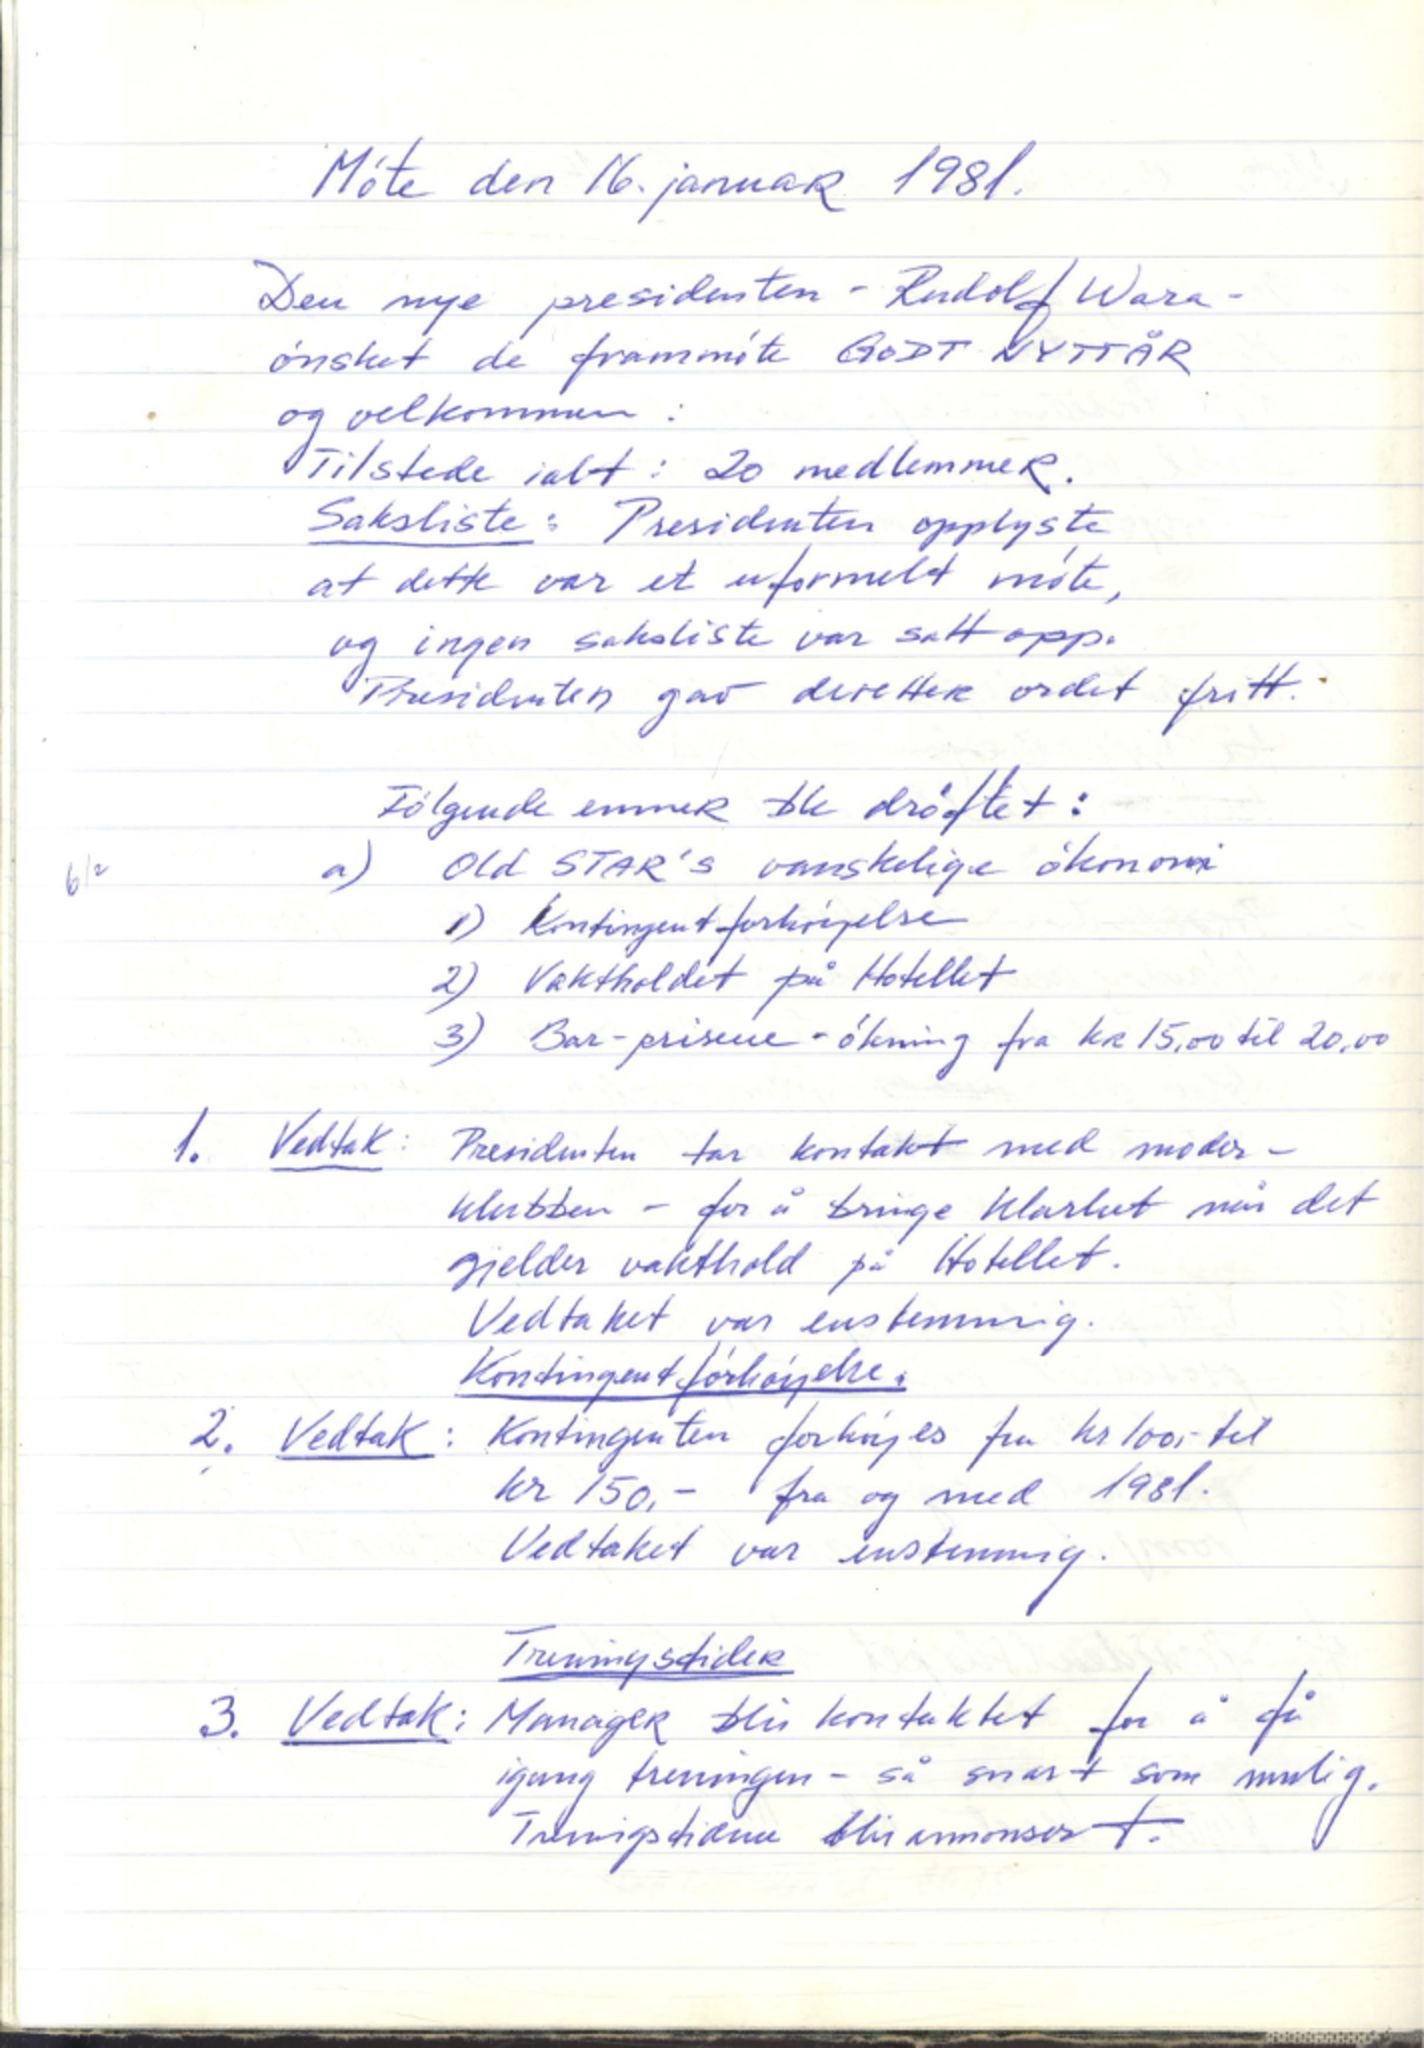 Móte den 16. januar 1981.
Den nye presidenten - Rudolf Wara -
ónsket de frammóte GODT NYTTÅR
og velkommen :
Tilstede ialt : 20 medlemmer.
Saksliste : Presidenten opplyste
at dette var et uformelt móte,
og ingen saksliste var satt opp.
Presidenten gav deretter ordet fritt.
Fólgende emner ble dróftet :
a) Old STAR'S vanskelige ókonomi
6/2
1) Kontingentforhóyelse
2) Vaktholdet på Hotellet
3) Bar-prisene - ókning fra kr 15,00 til 20,00
1. Vedtak : Presidenten tar kontakt med moder-
klubben - for å bringe klarhet når det
gjelder vakthold på Hotellet.
Vedtaket var enstemmig.
Kontingentforhóyelse.
2. Vedtak : Kontingenten forhóyes fra kr 100,- til
kr 150,- fra og med 1981.
Vedtaket var enstemmig.
Treningstider
3. Vedtak : Manager blir kontaktet for å få
igang treningen - så snart som mulig.
Treningstidene blir annonsert.